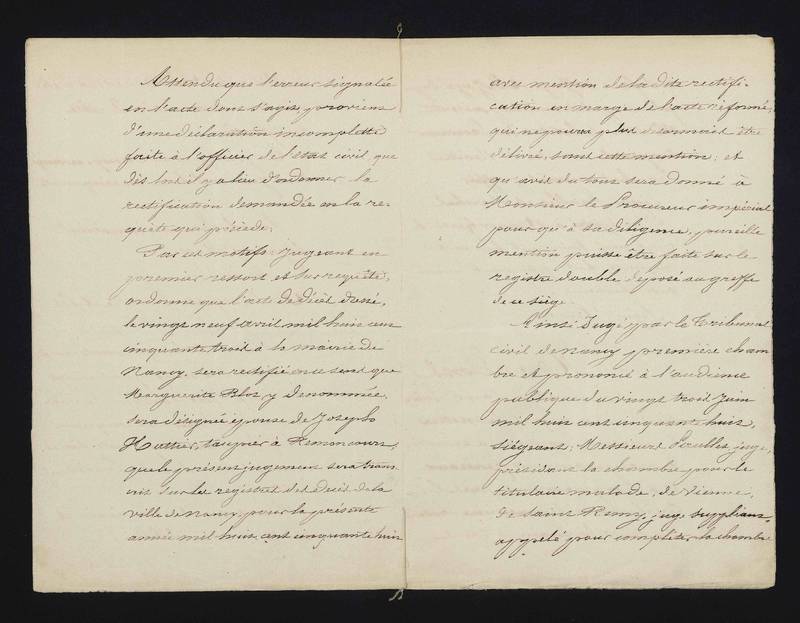 Attendu que l'erreur signalée
en l'acte dont s'agit, provient
d'une déclaration incomplette
faite à l'officier de l'état civil, que
dès lors il y a lieu d'ordonner la
rectification demandée en la re-
quête qui précède;
Par ces motifs: jugeant en
premier ressort et sur requête,
ordonne que l'acte de décès dressé,
le vingt neuf avril mil huit cent
cinquante trois à la mairie de
Nancy, sera rectifié en ce sens que
Marguerite y dénommée,
sera désignée épouse de Joseph
à
que le présent jugement sera trans
crit sur les registres des décès de la
ville de Nancy, pour la présente
année mil huit cent cinquante huit
avec mention de la dite rectifi-
cation en marge de l'acte réformé,
qui ne pourra plus désormais être
délivré, sans cette mention; et
qu'avis du tout sera donné à
Monsieur le Procureur impérial
pour qu'à sa diligence, pareille
mention puisse être faite sur le
registre double déposé au greffe
de ce siège.
Ainsi Jugé par le Tribunal
civil de Nancy, première cham
bre et prononcé à l'audience
publique du vingt trois Juin
mil huit cent cinquante huit,
siégeant: Messieurs juge,
présidant la chambre pour le
titulaire malade, de Vienne,
de Saint Remy, juge suppléant,
appelé pour compléter la chambre